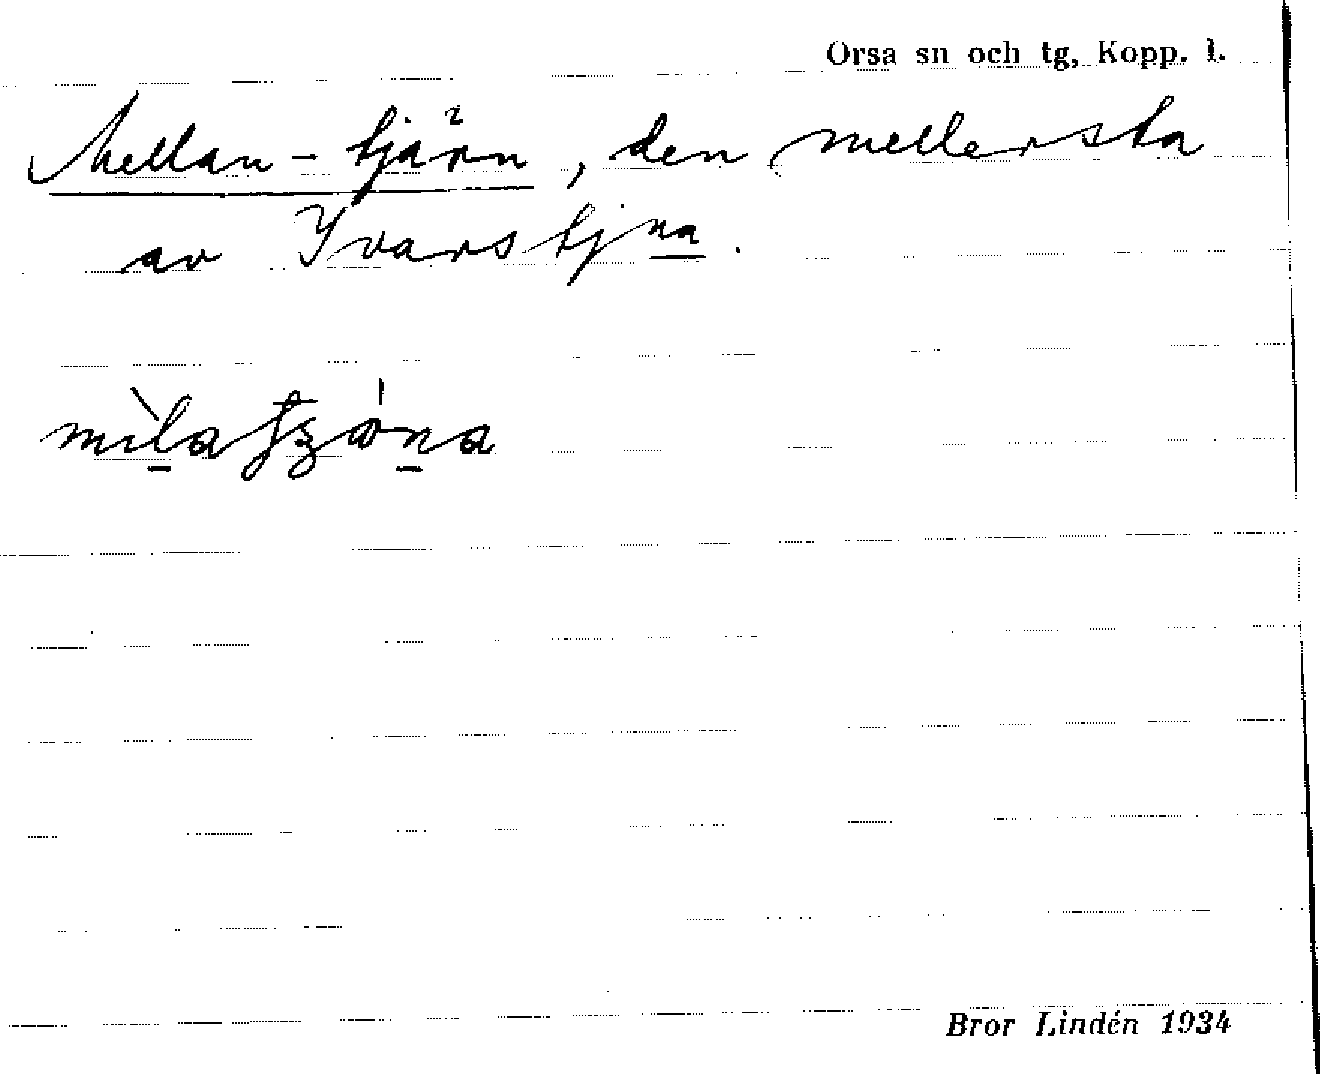 Orsa sn och tg, Kopp. l.
Mellan-tjärn, den mellersta
av Ivarstjna.
Bror Lindén 1934